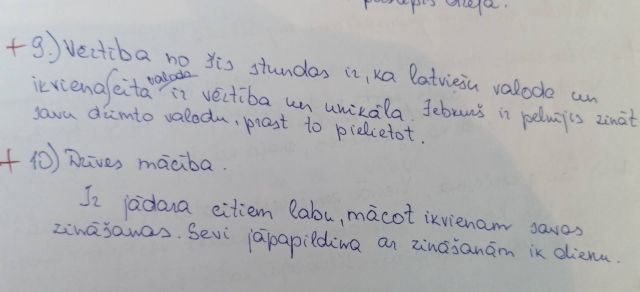 + 9.) Vērtība no šīs stundas ir, ka latviešu valoda un
ikviena cita valoda ir vērtība un unikāla. Jebkurš ir pelnījis zināt
savu dzimto valodu, prast to pielietot.
+ 10) Dzīves mācība.
Ir jādara citiem labu, mācot ikvienam savas
zināšanas. Sevi jāpapildina ar zināšanām ik dienu.